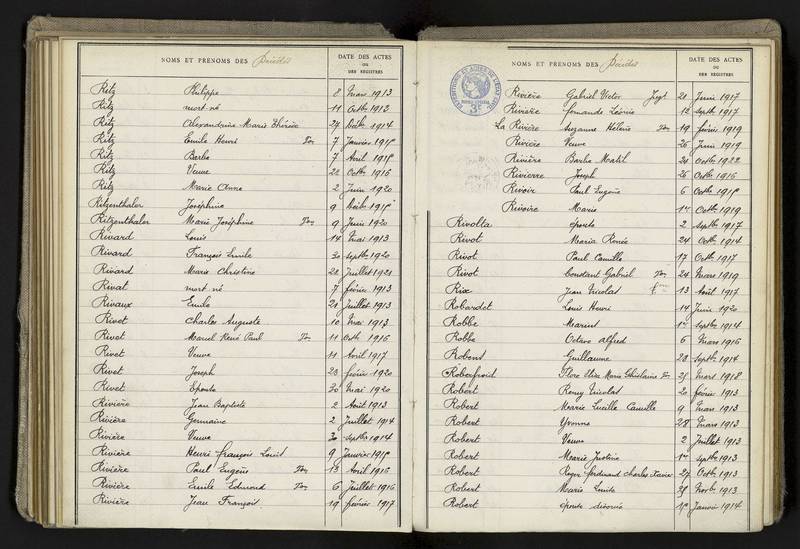 NOMS ET PRENOMS DES Décédés
DATE DES ACTES
OU
DES REGISTRES
Ritz Philippe 8 Mars 1913
Ritz mort né 11 Octb. 1913
Ritz Alexandrine Marie Thérèse 27 Décb. 1914
Ritz Emile Henri Ton 7 Janvier 1915
Ritz Barbe 7 Avril 1915
Ritz Veuve 20 Octb. 1916
Ritz Marie Anne 2 Juin 1920
Ritzenthaler Joséphine 9 Décb. 1915
Ritzenthaler Marie Joséphine Ton 9 Juin 1920
Rivard Louis 14 Mai 1913
Rivard François Emile 30 Septb. 1920
Rivard Marie Christine 28 Juillet 1921
Rivat mort né 7 février 1913
Rivaux Emile 21 Juillet 1913
Rivet Charles Auguste 10 Mai 1913
Rivet Marcel René Paul Ton 11 Octb. 1916
Rivet Veuve 11 Avril 1917
Rivet Joseph 23 février 1920
Rivet Epouse 30 Mai 1920
Rivière Jean Baptiste 2 Août 1913
Rivière Germaine 2 Juillet 1914
Rivière Veuve 30 Septb. 1914
Rivière Henri François Louis 9 Janvier 1915
Rivière Paul Eugène Ton 13 Avril 1916
Rivière Emile Edmond Ton 6 Juillet 1916
Rivière Jean François 19 février 1917
NOMS ET PRENOMS DES Décédés
DATE DES ACTES
OU
DES REGISTRES
Rivière Gabriel Victor Jugt 21 Juin 1917
Rivière Fernande Léonie 12 Septb. 1917
La Rivière Suzanne Hélène Ton 19 février 1919
Rivière Veuve 26 Juin 1919
Rivière Barbe 21 Octb. 1922
Rivierre Joseph 26 Octb. 1916
Rivoir Paul Eugène 6 Octb. 1915
Rivoire Marie Octb. 1919
Rivolta épouse 2 Septb. 1917
Rivot Maria Renée 24 Octb. 1914
Rivot Paul Camille 17 Octb. 1917
Rivot Constant Gabriel Ton 24 Mars 1919
Rix Jean Nicolas 13 Août 1917
Robardet Louis Henri 14 Juin 1920
Robbe Septb. 1914
Robbe Octave Alfred 6 Mars 1916
Robent Guillaume 28 Septb. 1914
Roberfroid Flore Elise Marie Ghislaine Ton 25 Mars 1918
Robert Remy Nicolas 20 février 1913
Robert Marie Lucille Camille 9 Mars 1913
Robert Yvonne 28 Mars 1913
Robert Veuve 2 Juillet 1913
Robert Marie Justine Septb. 1913
Robert Roger Ferdinand Charles Xavier 27 Octb. 1913
Robert Marie Louise Novb. 1913
Robert épouse divorcée Janvier 1914